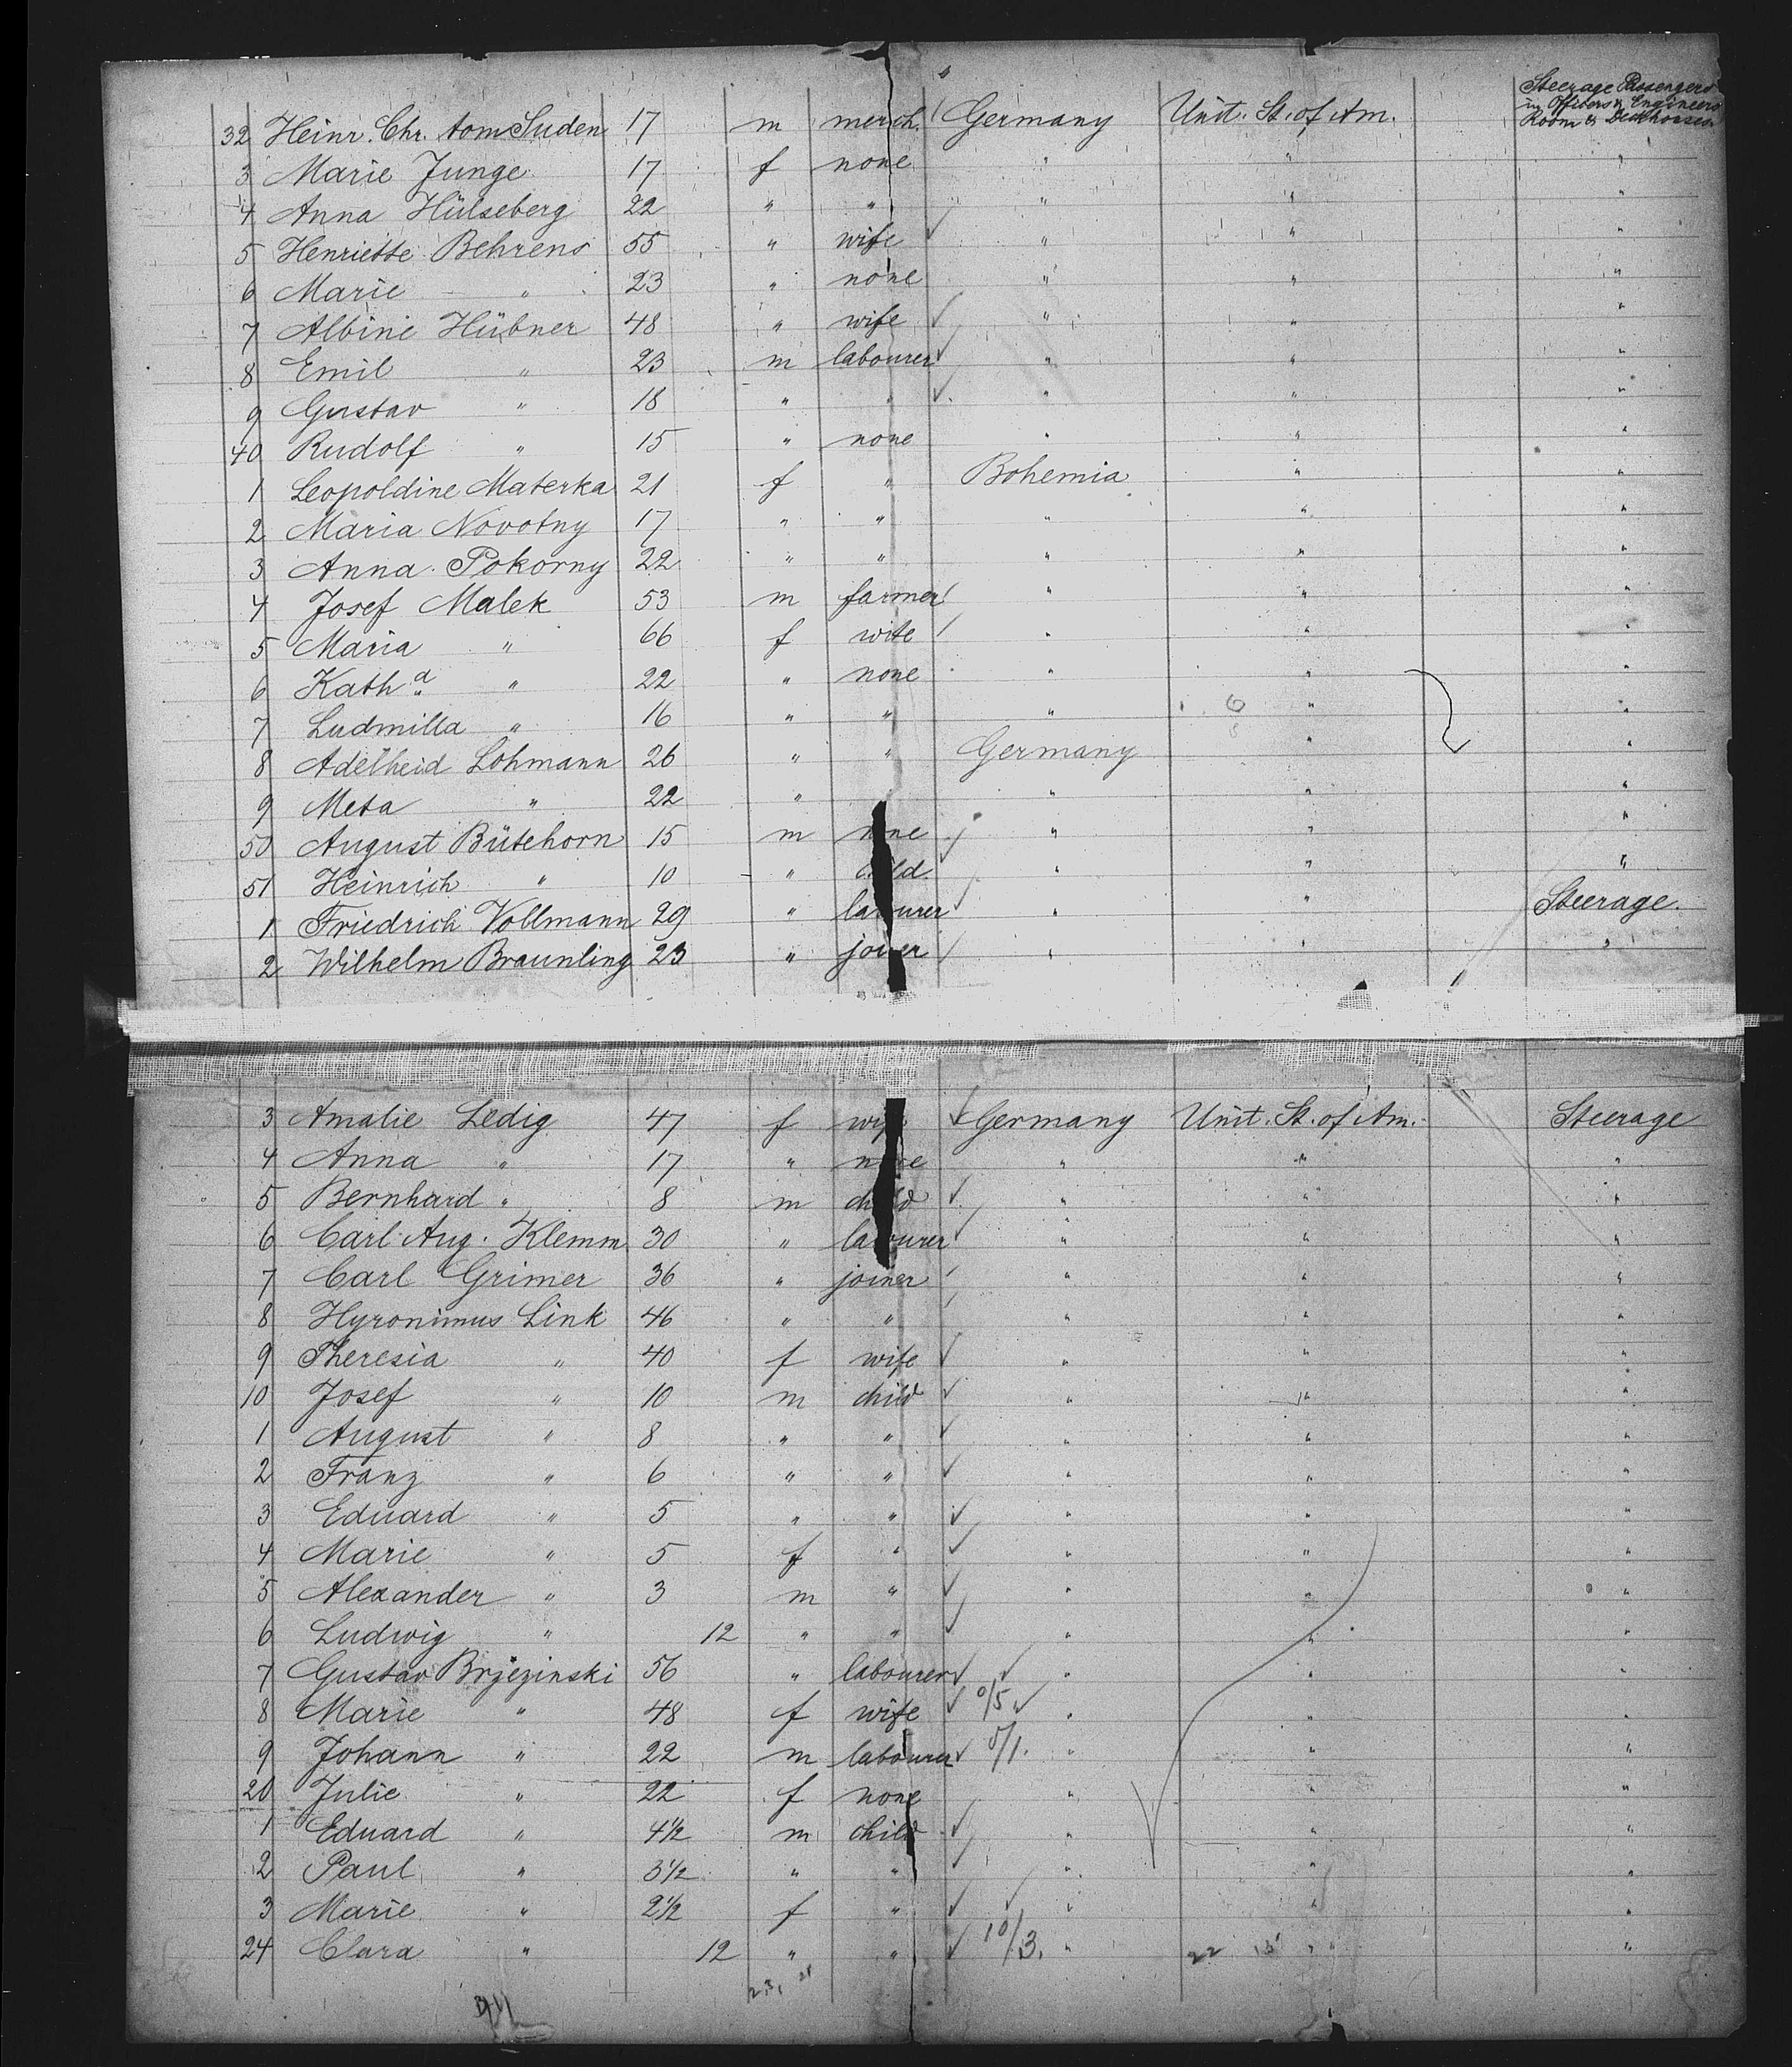 Steerage Passengers
in Officers & Engineers
Room & Deckhouses.
32 Heinr. Chr. tom Suden 17 m merch. Germany Unit. St. of Am.
3 Marie Junge 17 f none " " "
4 Anna Hülseberg 22 " " " " "
5 Henriette Behrens 55 " wife " " "
6 Marie " 23 " none " " "
7 Albine Hübner 48 " wife " " "
8 Emil " 23 m labourer " " "
9 Gustav " 18 " " " " "
40 Rudolf " 15 " none " " "
1 Leopoldine Materka 21 f " Bohemia " "
2 Maria Novotny 17 " " " " "
3 Anna Pokorny 22 " " " " "
4 Josef Malek 53 m farmer " " "
5 Maria " 66 f wife " " "
6 Katha " 22 " none " " "
7 Ludmilla " 16 " " " " "
8 Adelheid Lohmann 26 " " Germany " "
9 Meta " 22 " " " "
50 August Bütehorn 15 m none " " "
51 Heinrich " 10 " child " " "
1 Friedrich Vollmann 29 " labourer " " Steerage.
2 Wilhelm Braunling 23 " joiner " " "
3 Amalie Ledig 47 f wife Germany Unit. St. of Am. Steerage
4 Anna " 17 " none " " "
5 Bernhard " 8 m child " " "
6 Carl Aug. Klemm 30 " labourer " " "
7 Carl Grimer 36 " joiner " " "
8 Hyronimus Link 46 " " " " "
9 Theresia " 40 f wife " " "
10 Josef " 10 m child " " "
1 August " 8 " " " " "
2 Franz " 6 " " " " "
3 Eduard " 5 " " " " "
4 Marie " 5 f " " " "
5 Alexander " 3 m " " " "
6 Ludwig " 12 " " " " "
7 Gustav Brzezinski 56 " labourer " " "
8 Marie " 48 f wife 0/5 " " "
9 Johann " 22 m labourer 5/1. " " "
20 Julie " 22 f none " " "
1 Eduard " 4½ m child " " "
2 Paul " 3½ " " " " "
3 Marie " 2½ f " " " "
24 Clara " 12 " " 10/3. " 22 " "